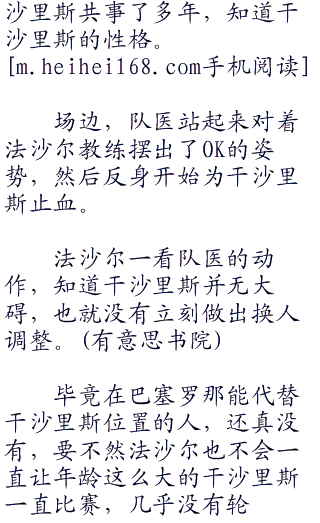 沙里斯共事了多年，知道干
沙里斯的性格。
[m.heihei168.com手机阅读]
场边，队医站起来对着
法沙尔教练摆出了OK的姿
势，然后反身开始为干沙里
斯止血。
法沙尔一看队医的动
作，知道干沙里斯并无大
碍，也就没有立刻做出换人
调整。(有意思书院)
毕竟在巴塞罗那能代替
干沙里斯位置的人，还真没
有，要不然法沙尔也不会一
直让年龄这么大的干沙里斯
一直比赛，几乎没有轮